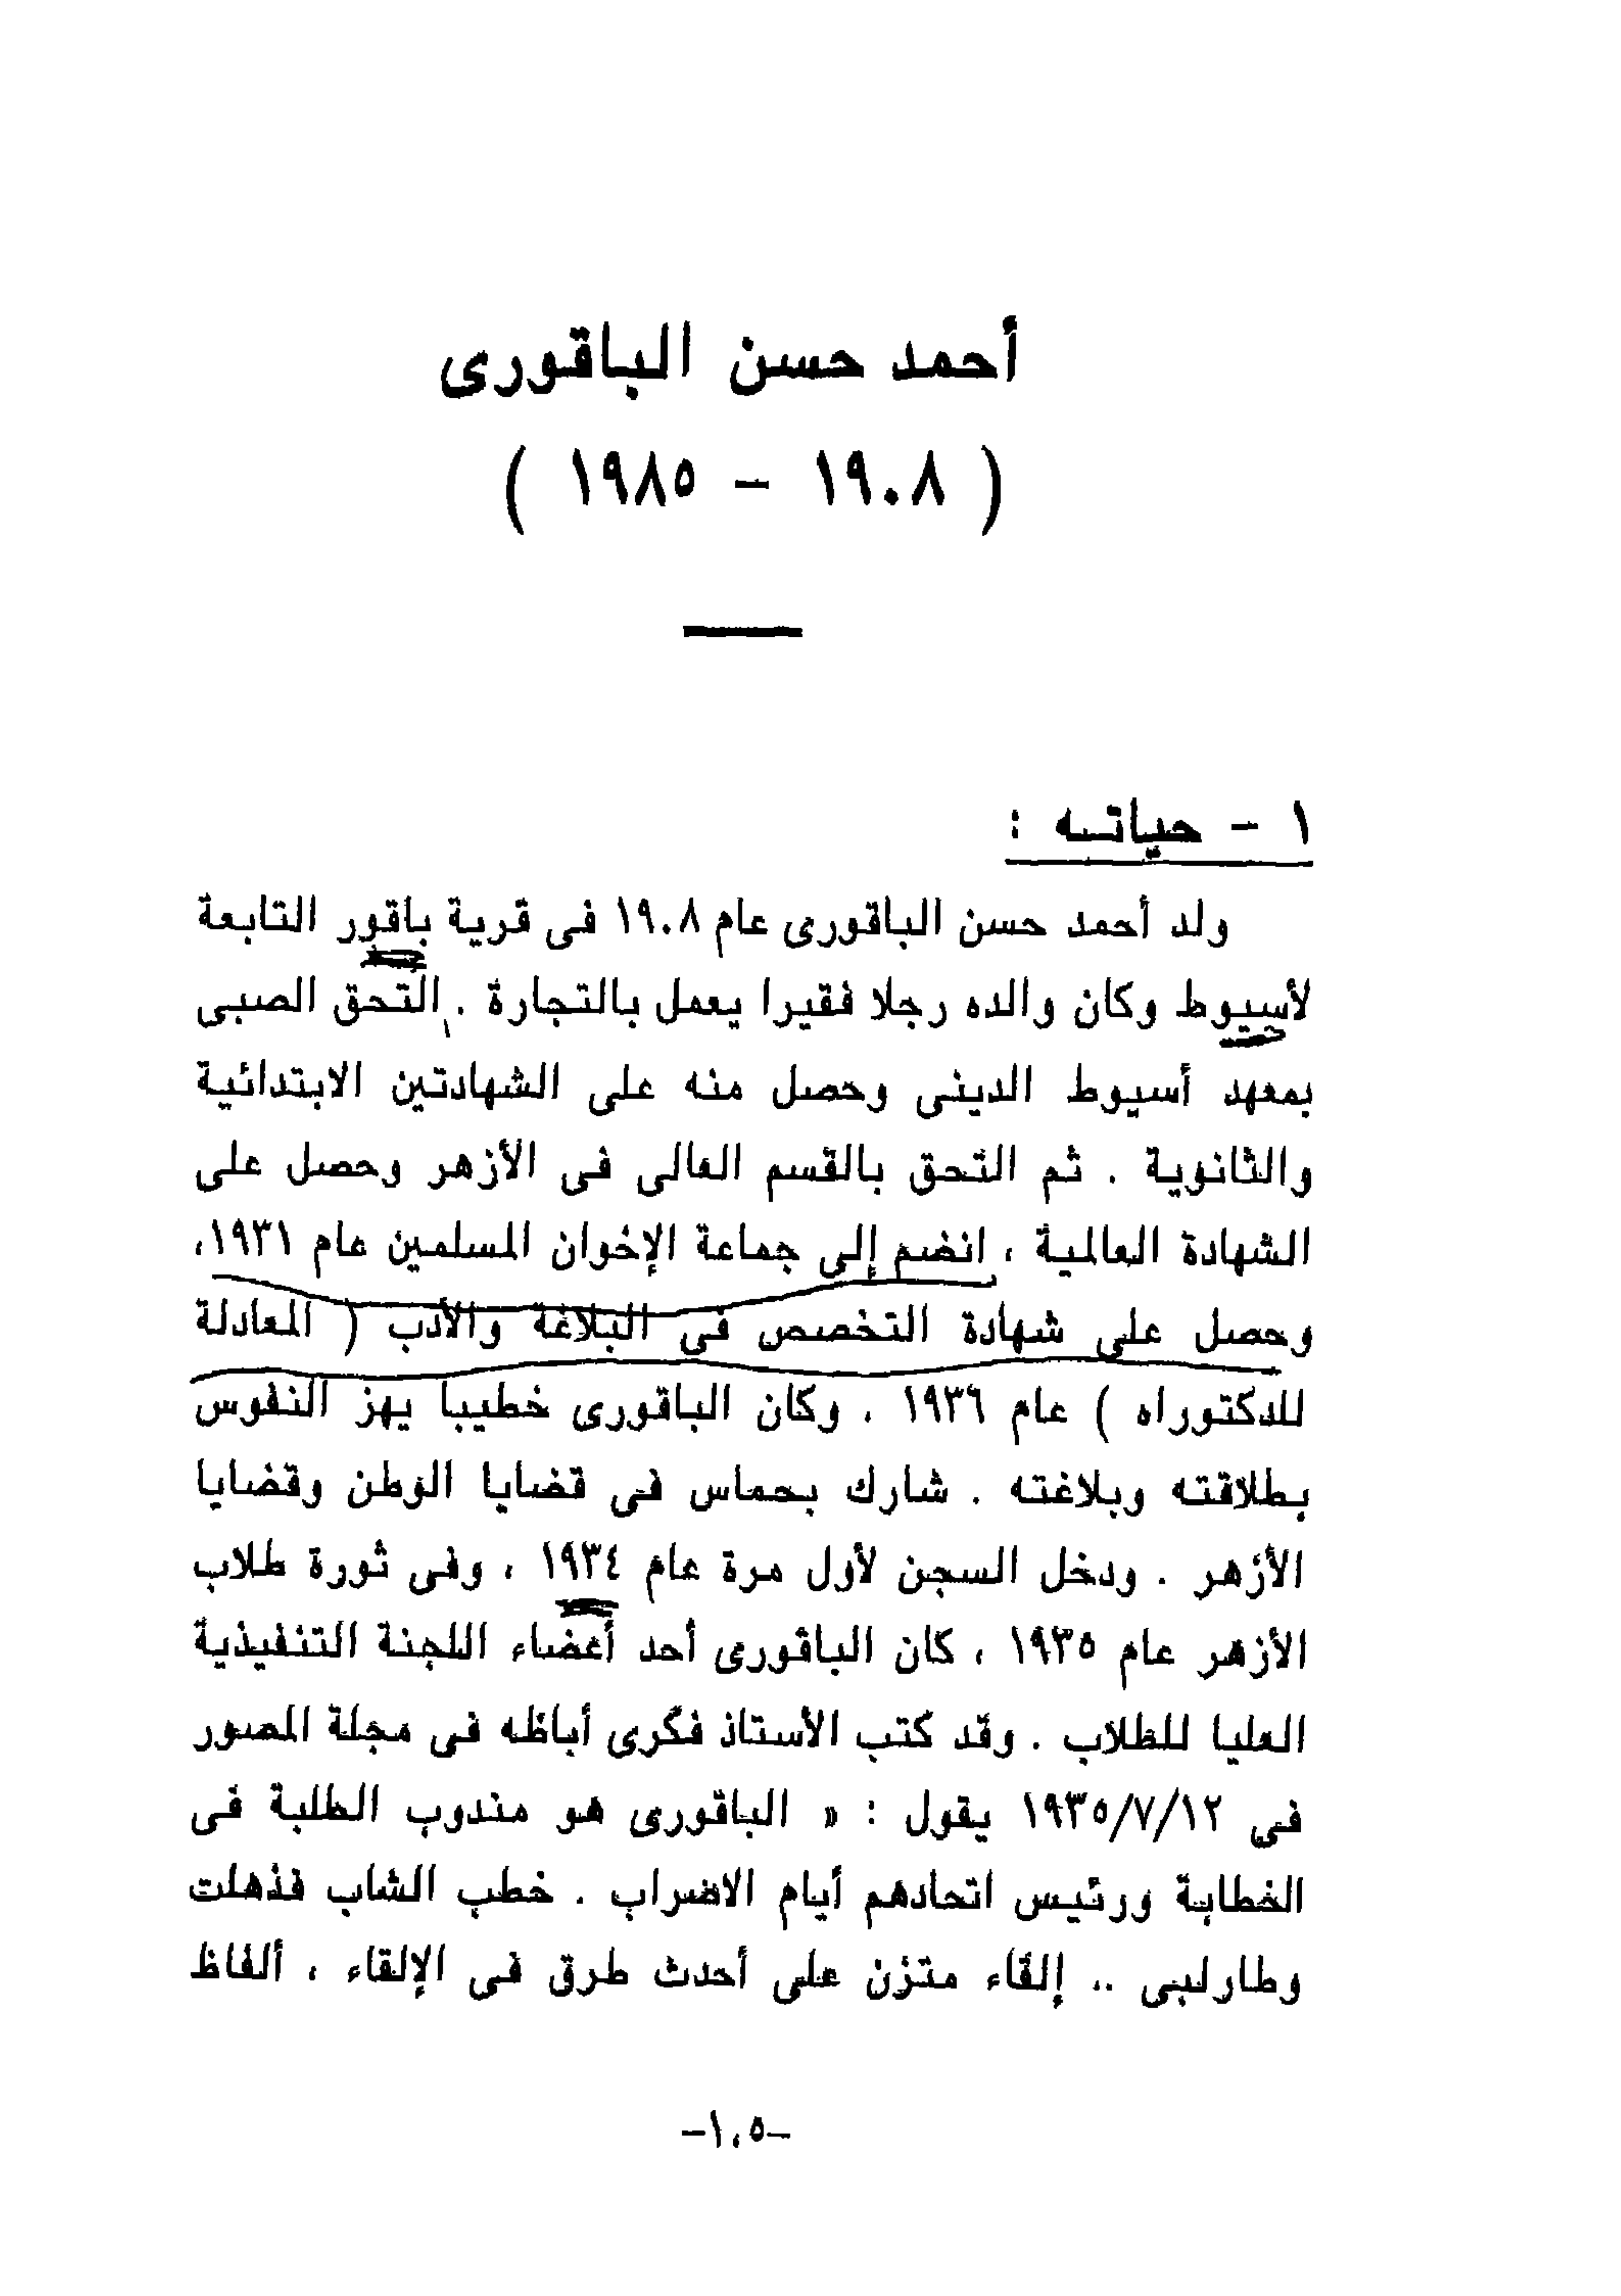 أحمد حسن الباقورى
( ١٩٠٨ - ١٩٨٥ )
١ - حياتـه :
ولد أحمد حسن الباقورى عام ١٩٠٨ فى قرية باقور التابعة
لأسيوط وكان والده رجلا فقيرا يعمل بالتجارة . التحق الصبى
بمعهد أسيوط الدينى وحصل منه على الشهادتين الابتدائية
والثانوية . ثم التحق بالقسم العالى فى الأزهر وحصل على
الشهادة العالمية ، انضم إلى جماعة الإخوان المسلمين عام ١٩٣١،
وحصل على شهادة التخصص فى البلاغة والأدب ( المعادلة
للدكتوراه ) عام ١٩٣٦ . وكان الباقورى خطيبا يهز النفوس
بطلاقته وبلاغته . شارك بحماس فى قضايا الوطن وقضايا
الأزهر . ودخل السجن لأول مرة عام ١٩٣٤ ، وفى ثورة طلاب
الأزهر عام ١٩٣٥ ، كان الباقورى أحد أعضاء اللجنة التنفيذية
العليا للطلاب . وقد كتب الأستاذ فكرى أباظه فى مجلة المصور
فى ١٩٣٥/٧/١٢ يقول : « الباقورى هو مندوب الطلبة فى
الخطابة ورئيس اتحادهم أيام الاضراب . خطب الشاب فذهلت
وطار لبى .. إلقاء متزن على أحدث طرق فى الإلقاء ، ألفاظ
-١٠٥-